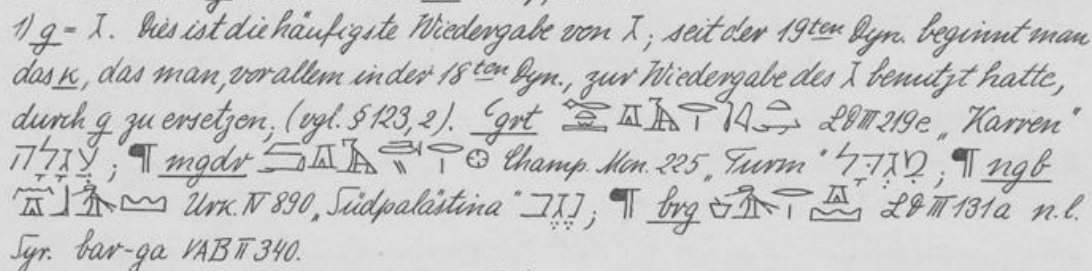 1) g = ג. Dies ist die häufigste Wiedergabe von ג; seit der 19ten Dyn. beginnt man
das k, das man, vor allem in der 18ten Dyn., zur Wiedergabe des ג benutzt hatte,
durch g zu ersetzen, (vgl. § 123, 2). ꜥgrt LD III 219e „Karren“
עגלה; ¶ mgdr Champ. Mon. 225 „Turm“ מגדל; ¶ ngb
Urk. IV 890 „Südpalästina“ נֶגֶב; ¶ brg LD III 131a n.l.
Syr. bar-ga VAB II 340.